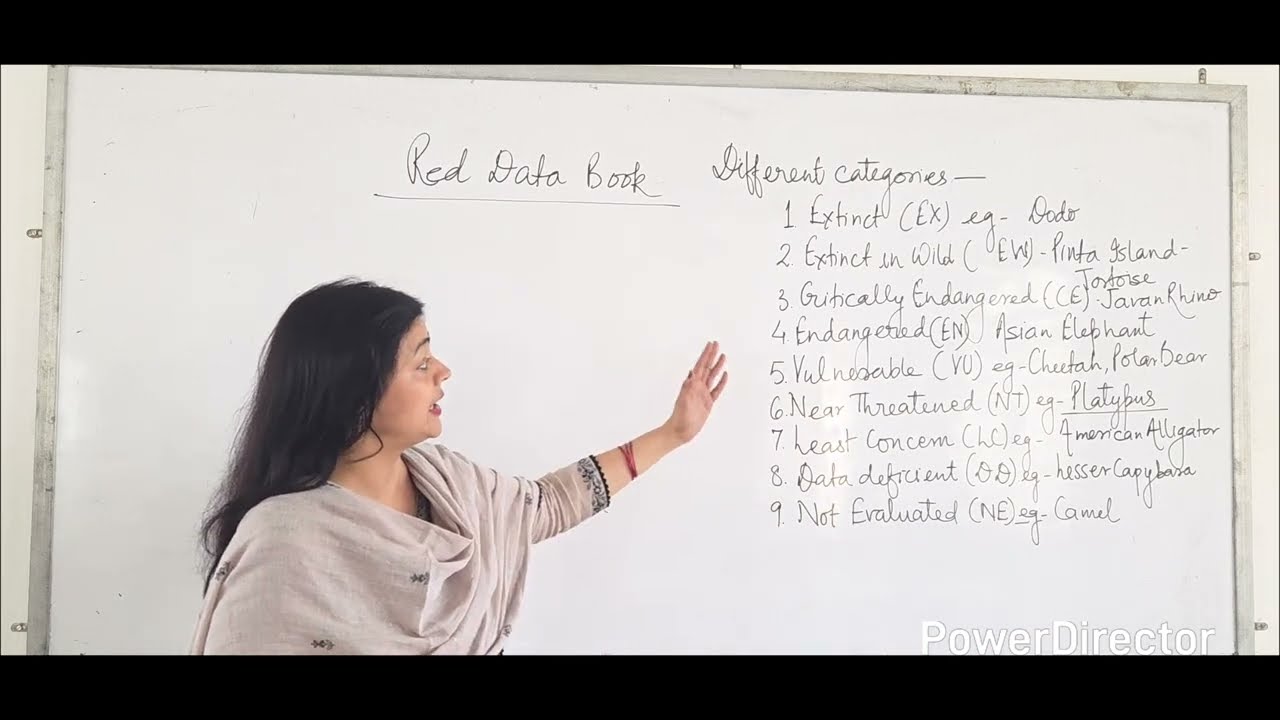 Red Data Book
Different categories —
1. Extinct (EX) eg- Dodo
2. Extinct in Wild ( EW) - Pinta Island-
Tortoise
3. Critically Endangered (CE) - Javan Rhino
4. Endangered (EN) Asian Elephant
5. Vulnerable (VU) eg- Cheetah, Polar bear
6. Near Threatened (NT) eg- Platypus
7. Least Concern (LC) eg- American Alligator
8. Data deficient (DD) eg- Lesser Capybara
9. Not Evaluated (NE) eg- Camel
PowerDirector